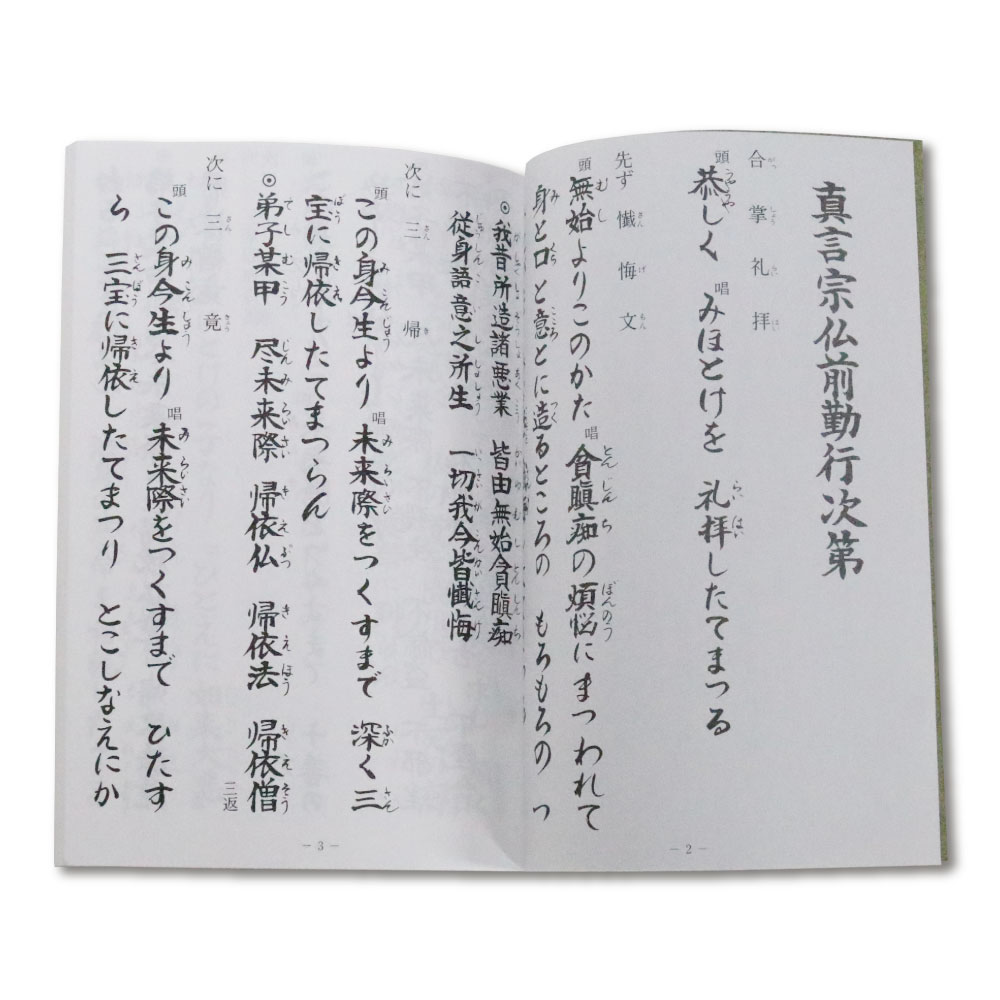 真言宗仏前勤行次第
合掌礼拝
頭 恭しく 唱 みほとけを 礼拝したてまつる
先ず 懺悔文
頭 無始よりこのかた 唱 貪瞋痴の煩悩にまつわれて
身と口と意とに造るところの もろもろの つ
－2－
⊙我昔所造諸悪業 皆由無始貪瞋痴
従身語意之所生 一切我今皆懺悔
次に 三帰
頭 この身今生より 唱 未来際をつくすまで 深く三
宝に帰依したてまつらん
⊙弟子某甲 尽未来際 帰依仏 帰依法 帰依僧 三返
次に 三竟
頭 この身今生より 唱 未来際をつくすまで ひたす
ら 三宝に帰依したてまつり とこしなえにか
－3－